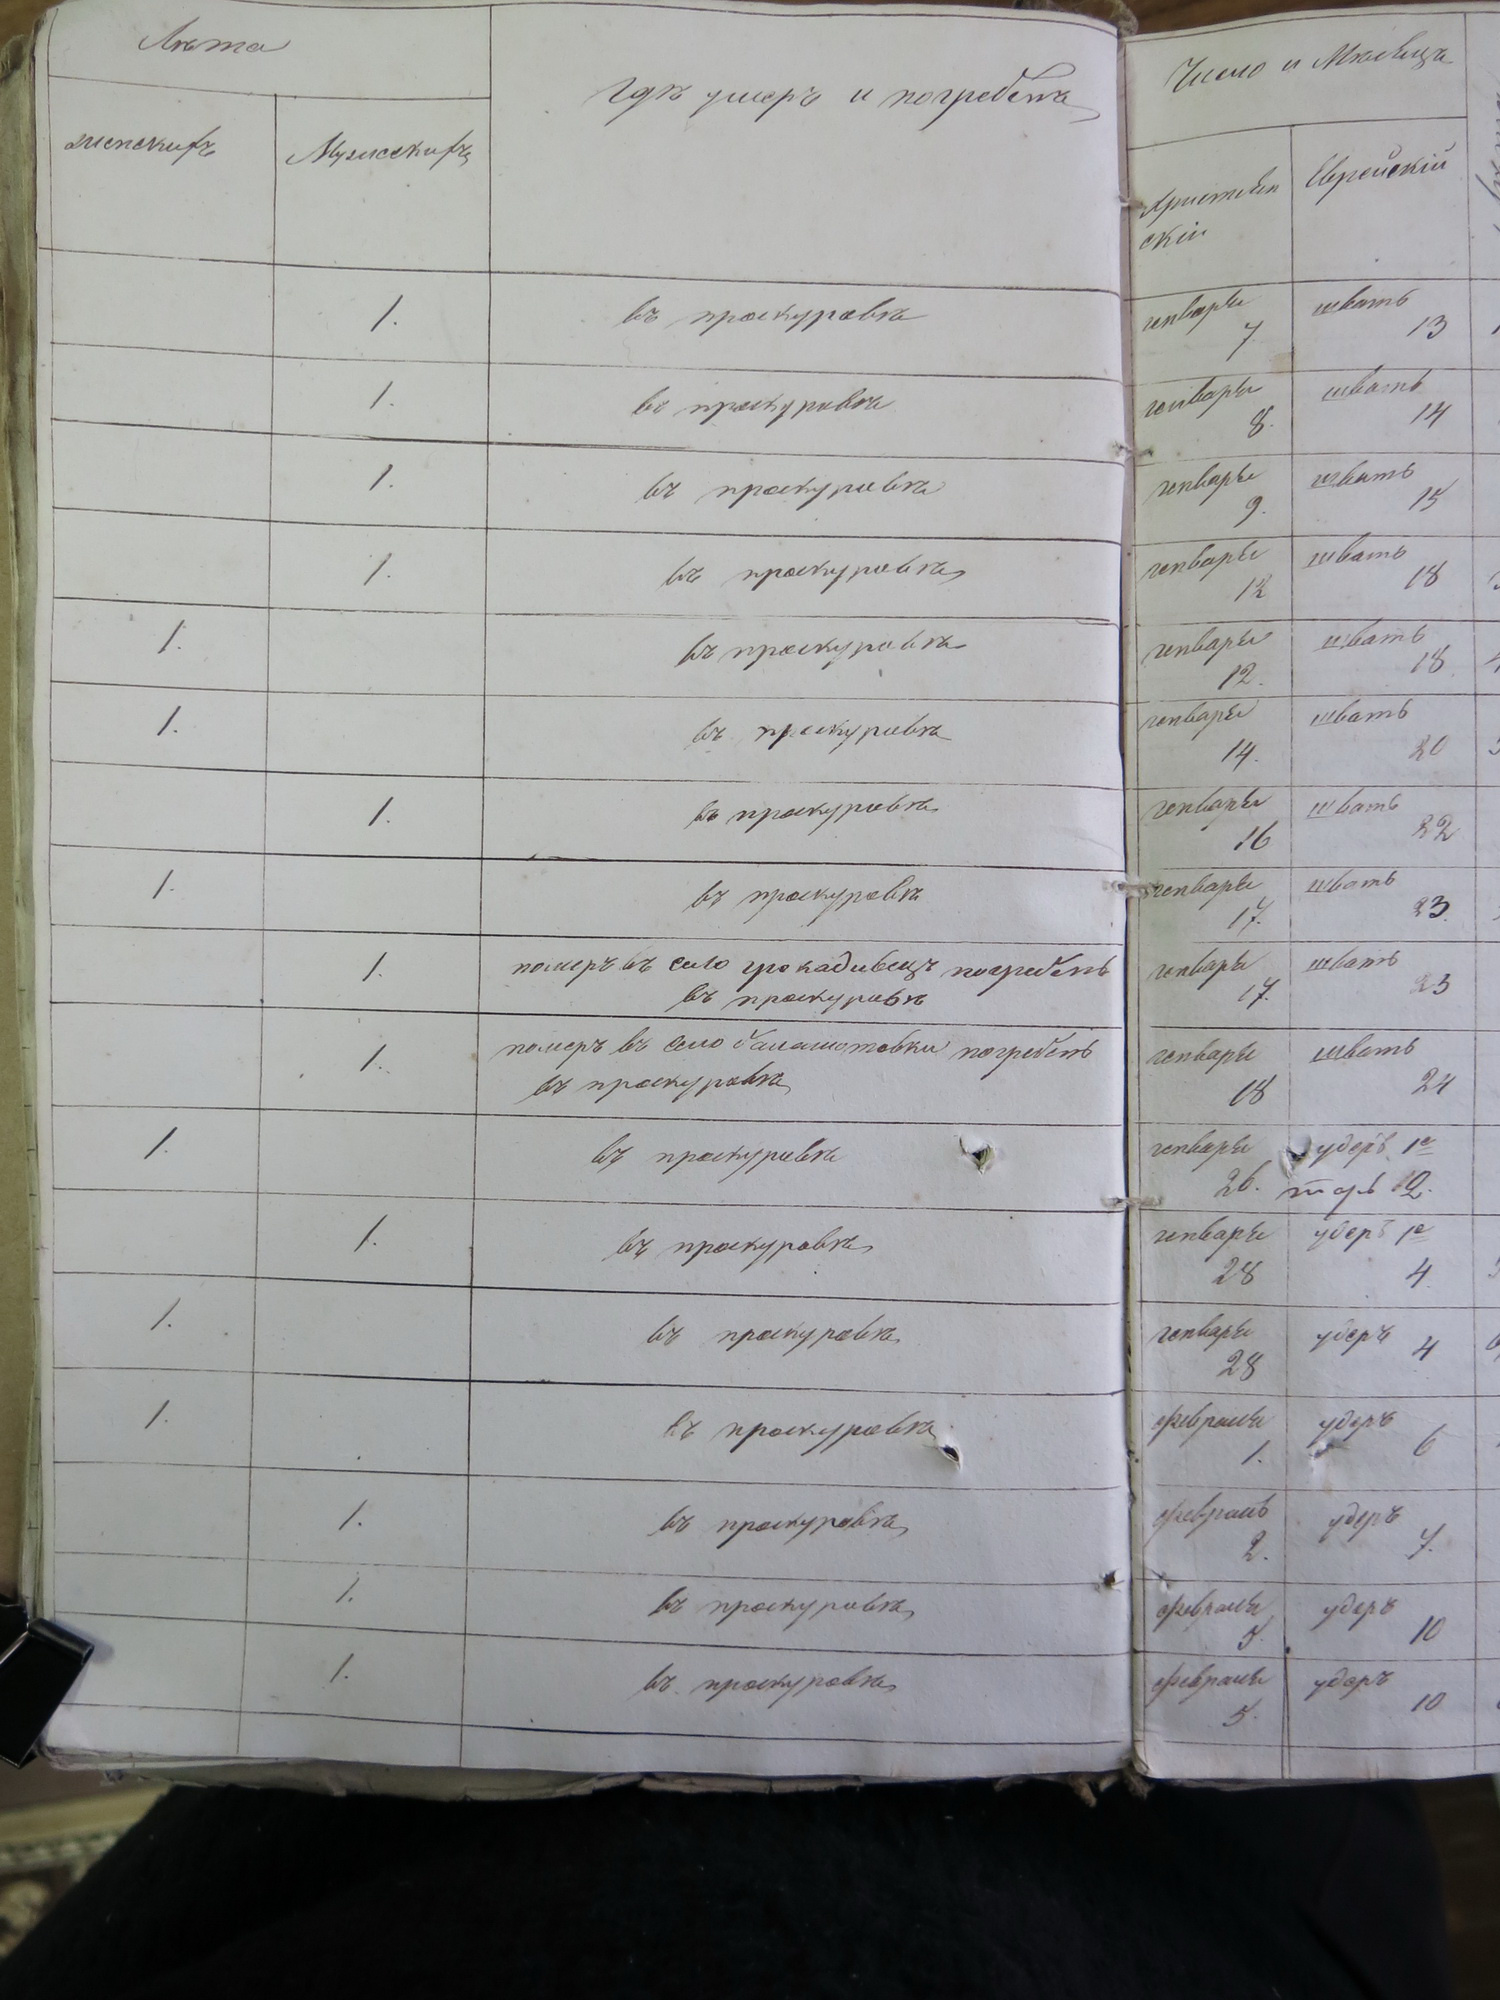 Лѣта
Гдѣ умеръ и погребенъ
Число и Мѣсяцъ
женскихъ
Мужескихъ
Христиан
скiй
Еврейскiй
1. въ проскуровѣ генварь 7 шватъ 13
1. въ проскуровѣ генварь 8. шватъ 14
1. въ проскуровѣ генварь 9. шватъ 15
1. въ проскуровѣ генварь 12 шватъ 18
1. въ проскуровѣ генварь 12. шватъ 18
1. въ проскуровѣ генварь 14. шватъ 20
1. въ проскуровѣ генварь 16 шватъ 22
1. въ проскуровѣ генварь 17. шватъ 23.
1. померъ въ село погребенъ
въ проскуровѣ генварь 17. шватъ 23
1. померъ въ село погребенъ
въ проскуровѣ генварь 18 шватъ 24
1. въ проскуровѣ генварь 26. удеръ 1е 2.
1. въ проскуровѣ генварь 28 удеръ 1е 4.
1. въ проскуровѣ генварь 28 удеръ 4
1. въ проскуровѣ февраля 1. удеръ 6
1. въ проскуровѣ февраль 2. удеръ 7.
1. въ проскуровѣ февраля 5. удеръ 10
1. въ проскуровѣ февраля 5. удеръ 10